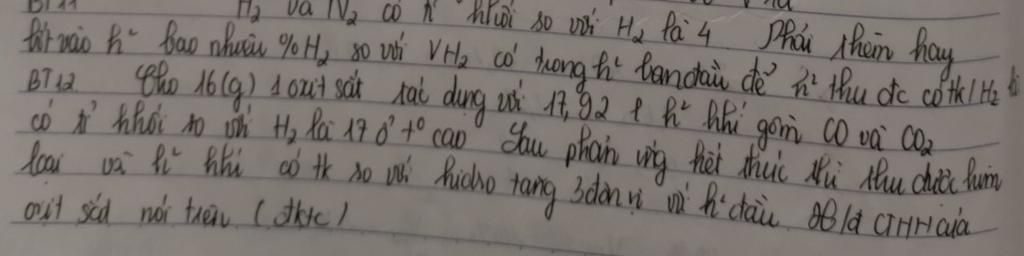 BT11 H2 và N2 có h² khối so với H2 là 4 Phải thêm hay
bớt vào h² bao nhiêu %H2 so với VH2 có trong h² ban đầu để h² thu đc có tk/H2
BT12 Cho 16(g) 1 oxit sắt tác dụng với 17,92 l h² khí gồm CO và CO2
có tỉ khối so với H2 là 17 ở t° cao Sau phản ứng kết thúc thì thu được kim
loại và h² khí có tk so với hidro tăng 3 đơn vị với h² đầu.
oxit sắt nói trên (đktc)